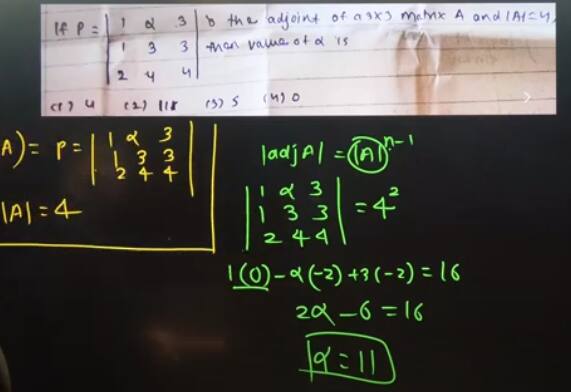 If P = | 1 α 3 | is the adjoint of a 3x3 matrix A and |A|=4,
| 1 3 3 | then value of α is
| 2 4 4 |
(1) 4 (2) 11 (3) 5 (4) 0
A) = P = | 1 α 3 |
| 1 3 3 |
| 2 4 4 |
|A| = 4
|adj A| = |A|^n-1
| 1 α 3 |
| 1 3 3 | = 4²
| 2 4 4 |
1(0) - α(-2) + 3(-2) = 16
2α - 6 = 16
α = 11